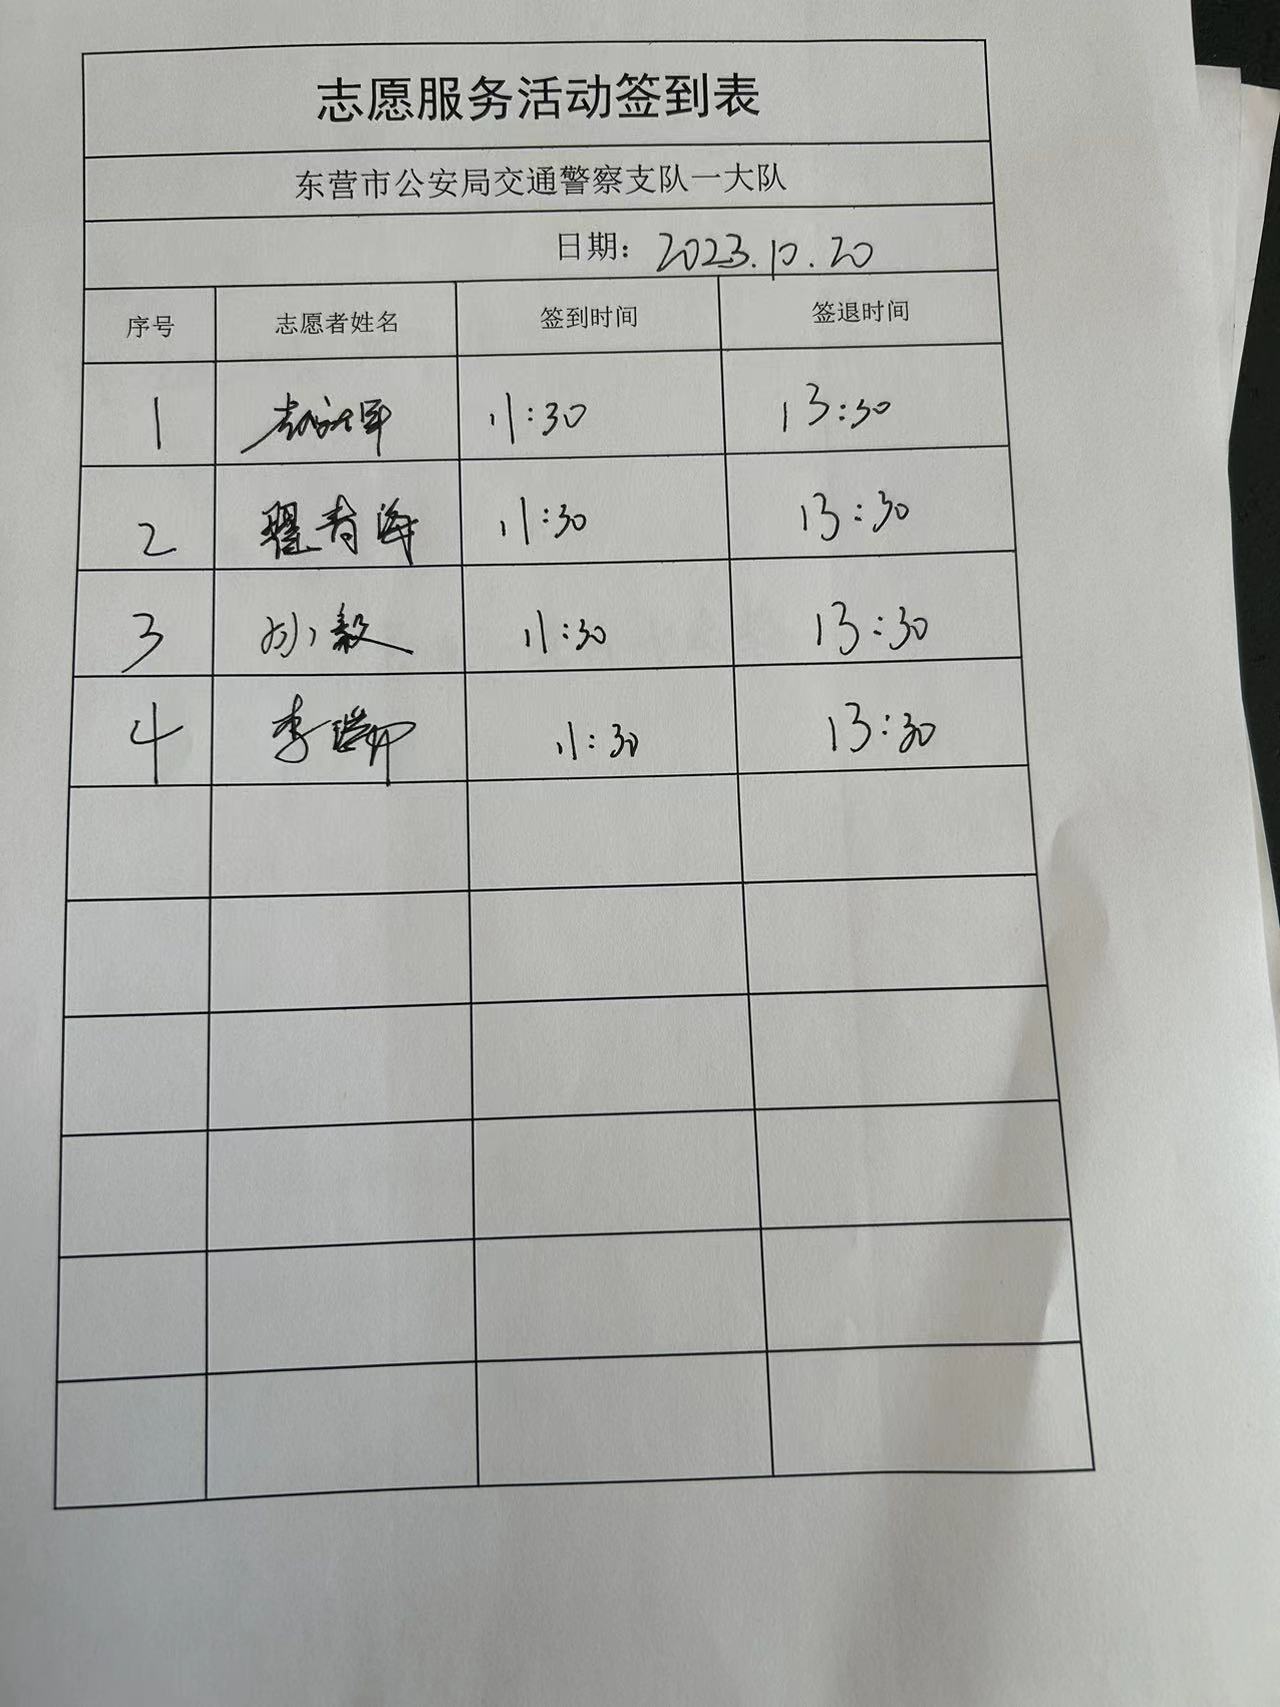 志愿服务活动签到表
东营市公安局交通警察支队一大队
日期: 2023.10.20
序号 志愿者姓名 签到时间 签退时间
1 11:30 13:30
2 翟青海 11:30 13:30
3 孙毅 11:30 13:30
4 李 11:30 13:30